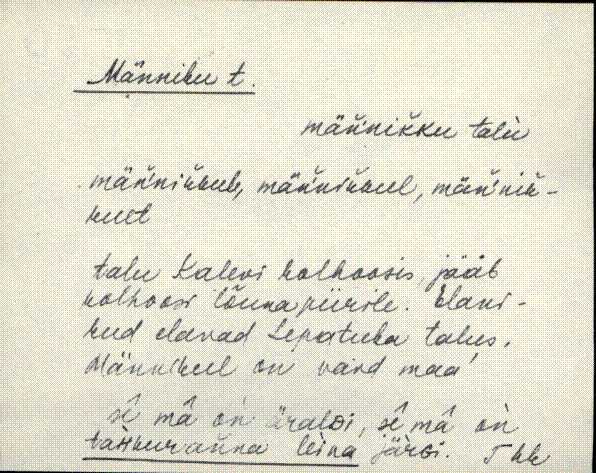 Männiku t.
männikku talu
männikkule, männikkul, männik-
kult
talu Kalevi kolhoosis, jääb
kolhoosi lõunapiirile. Elani-
kud elavad Lepatuka talus.
Männikul on vaid maa
sê mâ on äraldi, sê mâ on
leina järgi. Thk